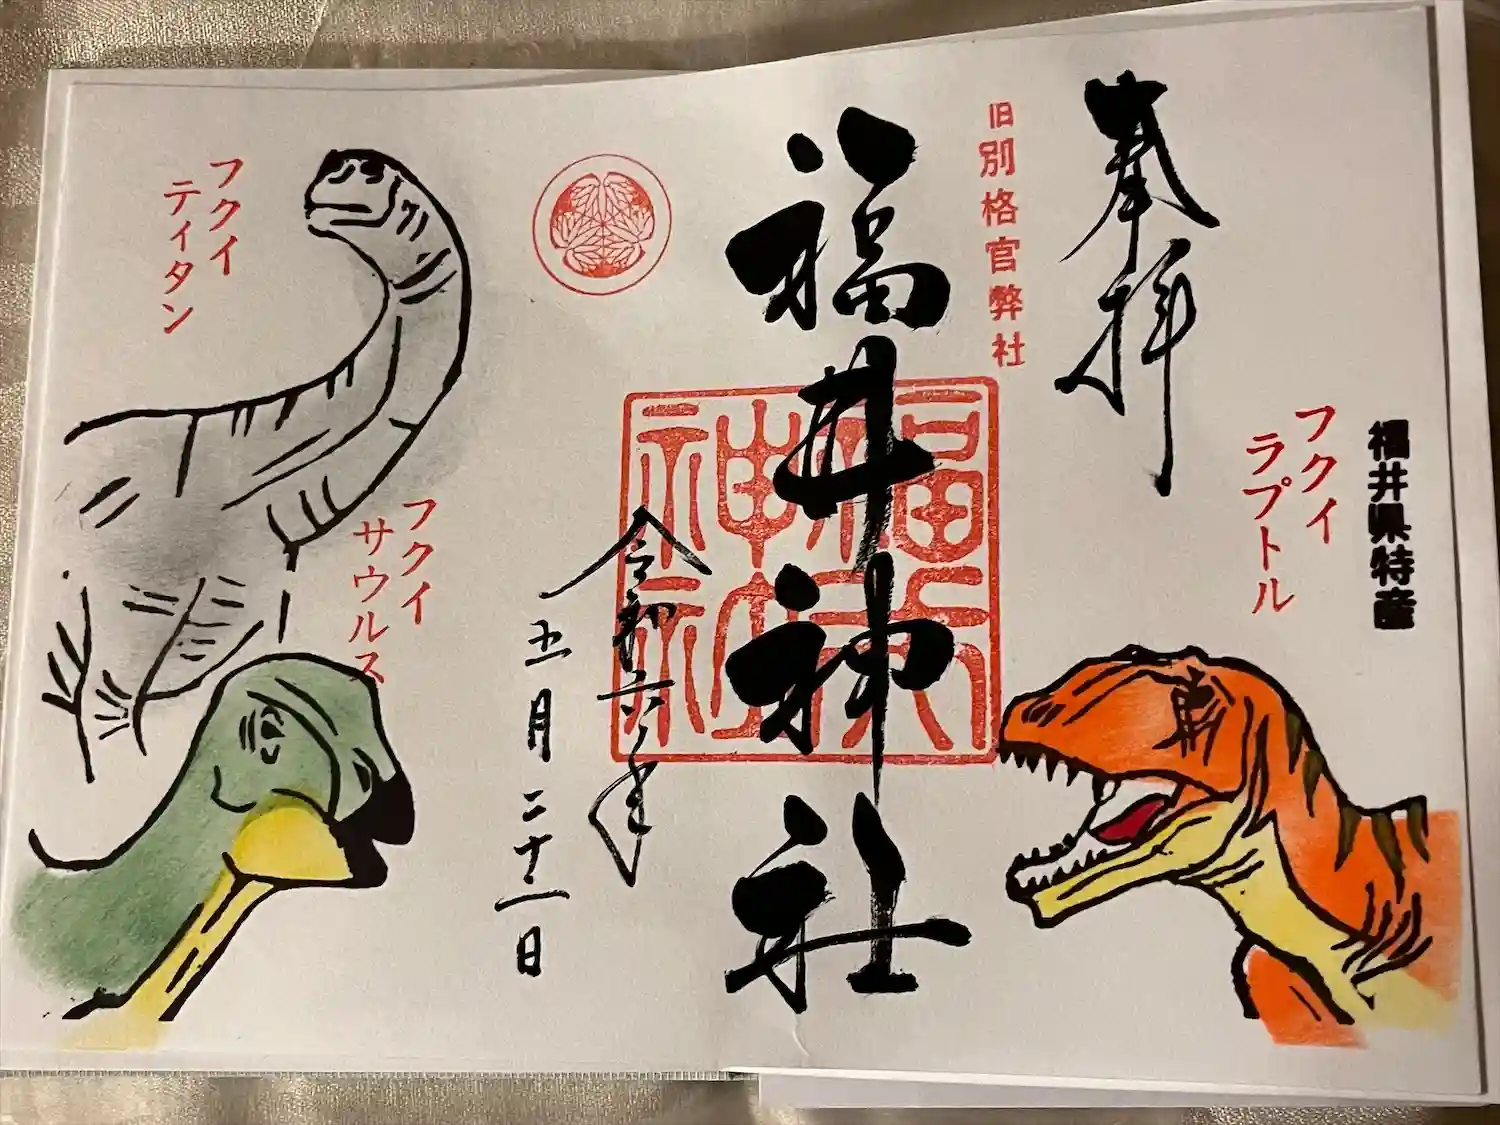 福井県特産
フクイ
ラプトル
奉拝
旧別格官弊社
福井神社
福井神社
令和六年
五月二十一日
フクイ
サウルス
フクイ
ティタン